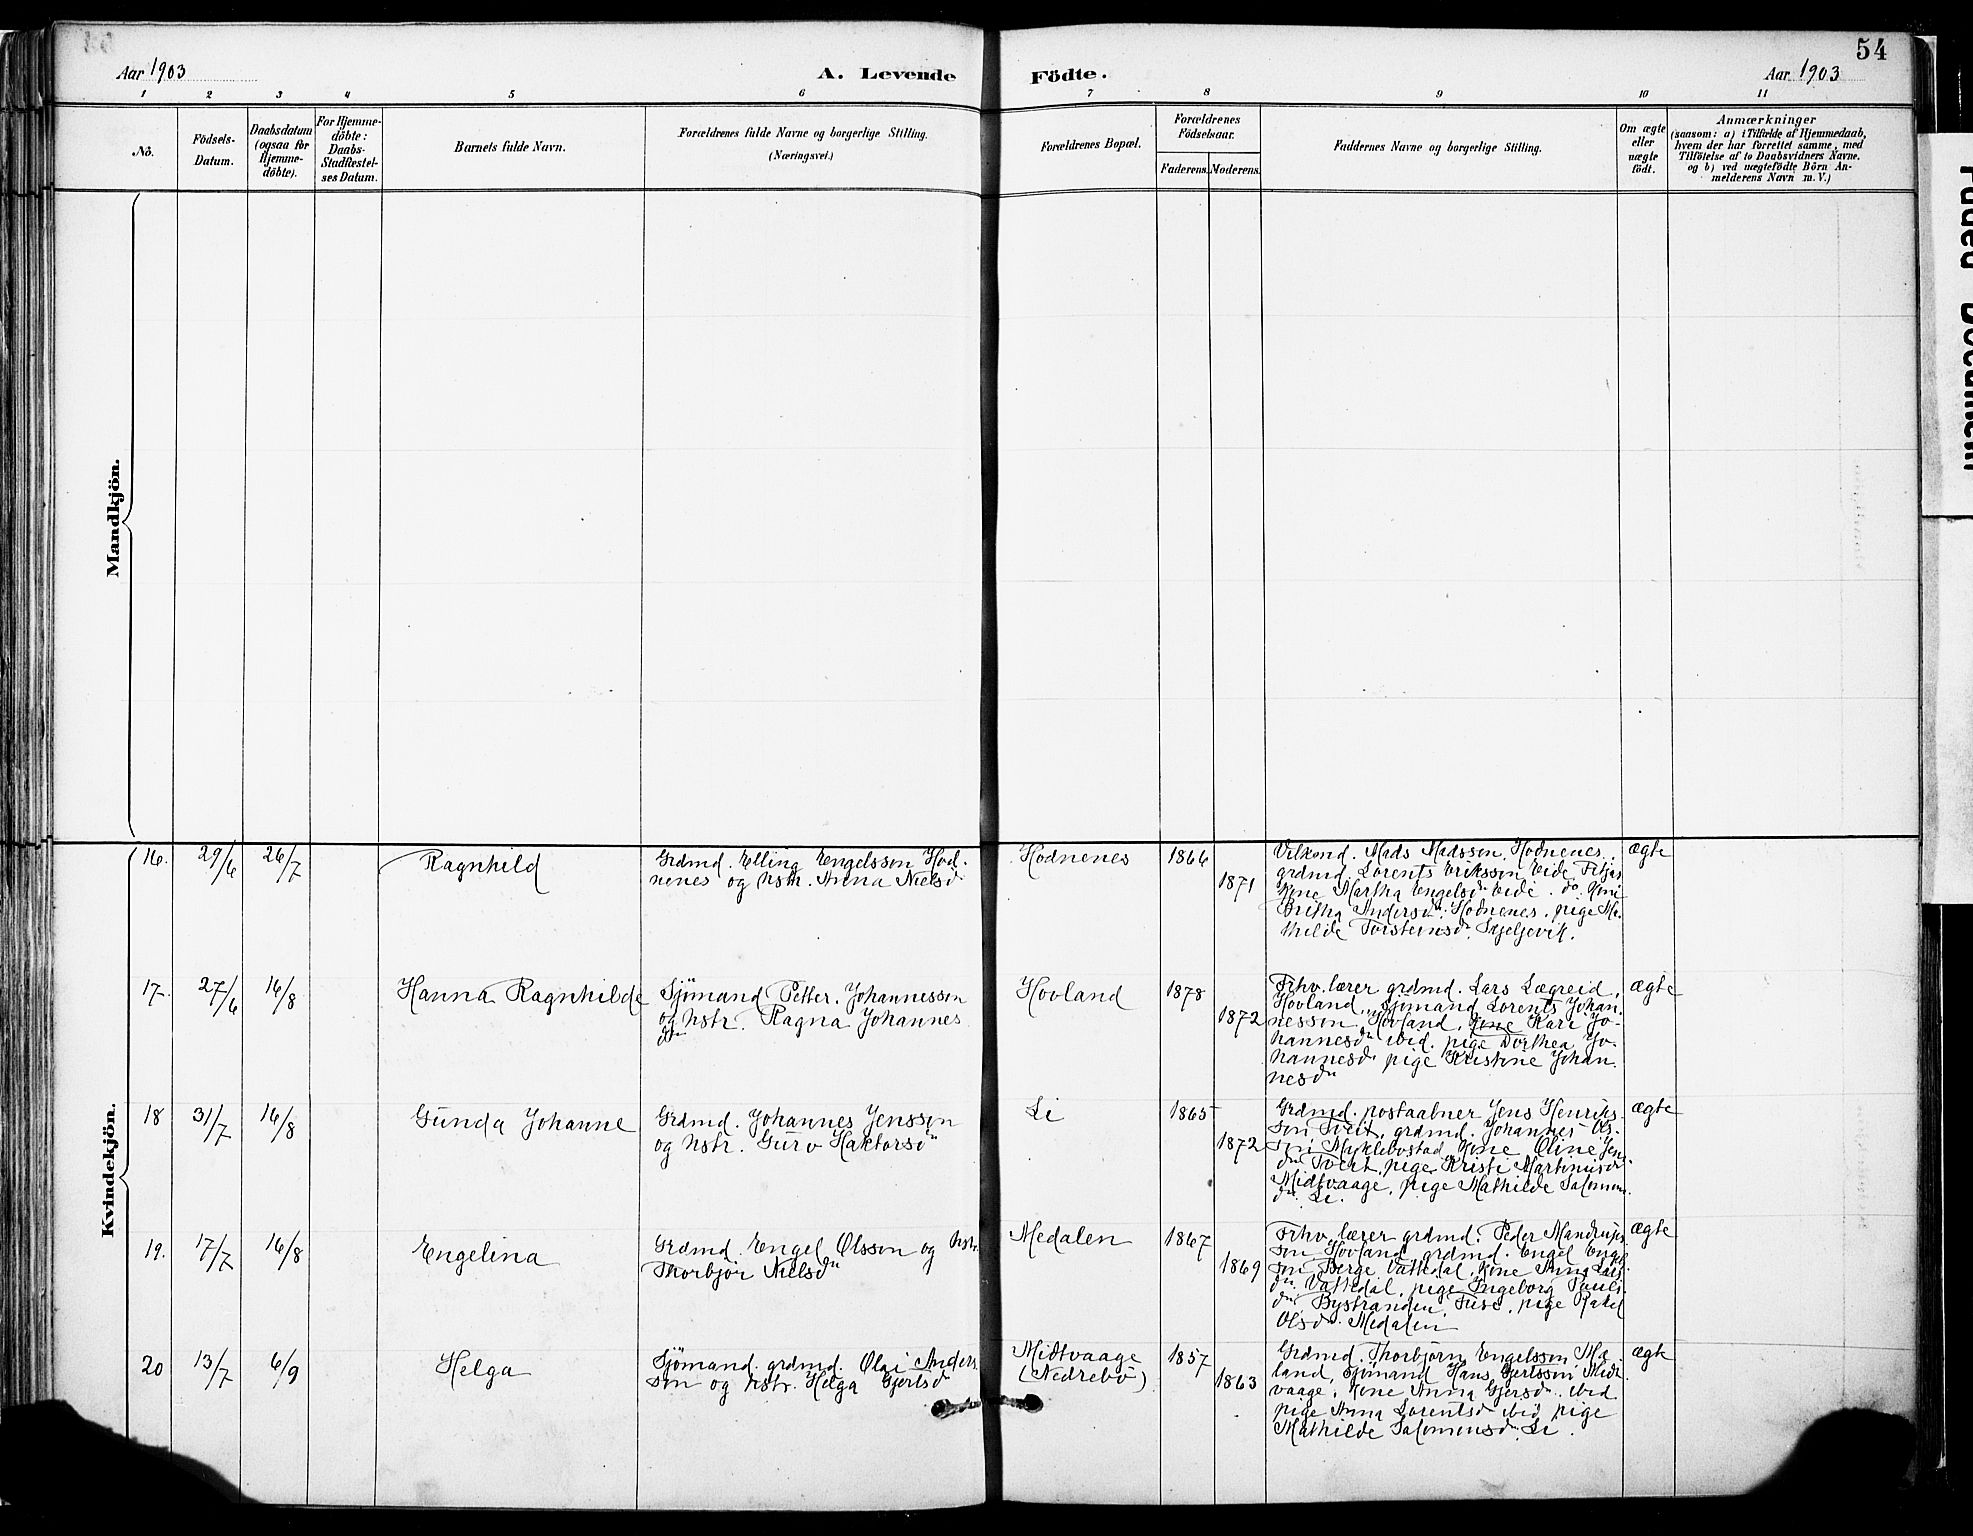 54
Aar 1903
A. Levende
Födte.
Aar 1903
1 2 3 4 5 6 7 8 9 10 11
No.
Födsels-
Datum.
Daabsdatum
(ogsaa for
Hjemme-
döbte).
For Hjemme-
döbte:
Daabs-
Stadfæstel-
ses Datum.
Barnets fulde Navn.
Forældrenes fulde Navne og borgerlige Stilling.
(Næringsvei.)
Forældrenes Bopæl.
Forældrenes
Födselsaar.
Faderens. Moderens.
Faddernes Navne og borgerlige Stilling.
Om ægte
eller
uægte
födt.
Anmærkninger
(saasom: a) i Tilfælde af Hjemmedaab,
hvem der har forrettet samme, med
Tilföielse af to Daabsvidners Navne.
og b) ved uægtefödte Börn An-
melderens Navn m. V.)
Mandkjön.
Kvindekjön.
16. 29/6 26/7
Ragnhild
Grdmd. Elling Engelsson Hod-
nenes og hstr. Anna Nielsdn
Hodnenes
1866
1871
Mads Madsson, Hodnenes.
grdmd. Lorents Eriksson Eide
Kone Martha Engelsdn Eide. do Kone
Britha Andersdn Hodnenes. pige Ma-
thilde Torsteinsdn Skjeljevik.
ægte
17. 27/6 16/8
Hanna Ragnhilde
Sjömand Petter Johannesson
og hstr. Ragna Johannes
dn
Hovland
1878
1872
Frhv. lærer grdmd. Lars Lægreid,
Hovland, Sjömand Lorents Johan-
nesson Hovland, Kone Kari Jo-
hannesdn ibid. pige Dorthea Jo-
hannesdn pige Kristine Johan-
nesdn
ægte
18 31/7 16/8
Gunda Johanne
Grdmd. Johannes Jensson
og hstr. Guro Haktorsdn
Li
1865
1872
Grdmd. postaabner Jens Henriks-
son Tveit, grdmd. Johannes Ols-
son Myklebostad, Kone Oline Jens-
dn Tveit, pige Kristi Martinusdn
Midtvaage, pige Mathilde Salomons-
dn Li.
ægte
19. 17/7 16/8
Engelina
Grdmd. Engel Olsson og hstr.
Thorbjör Nielsdn
Medalen
1867
1869
Frhv. lærer grdmd. Peder Mandrups-
son Hovland, grdmd. Engel Engel-
son Berge Vattedal, Kone Anna Lars-
dn Vattedal, pige Ingeborg Pauls-
dn Bystranden, Fuse, pige Rakel
Olsdn Medalen
ægte
20 13/7 6/9
Helga
Sjömand. grdmd. Olai Anders-
son og hstr. Helga Gjertsdn
Midtvaage
(Nedrebö)
1857
1863
Grdmd. Thorbjörn Engelsson Mæ-
land, Sjömand Hans Gjertsson Midt-
vaage, Kone Anna Gjersdn ibid
pige Anna Lorentsd ibid pige
Mathilde Salomonsdn Li.
ægte